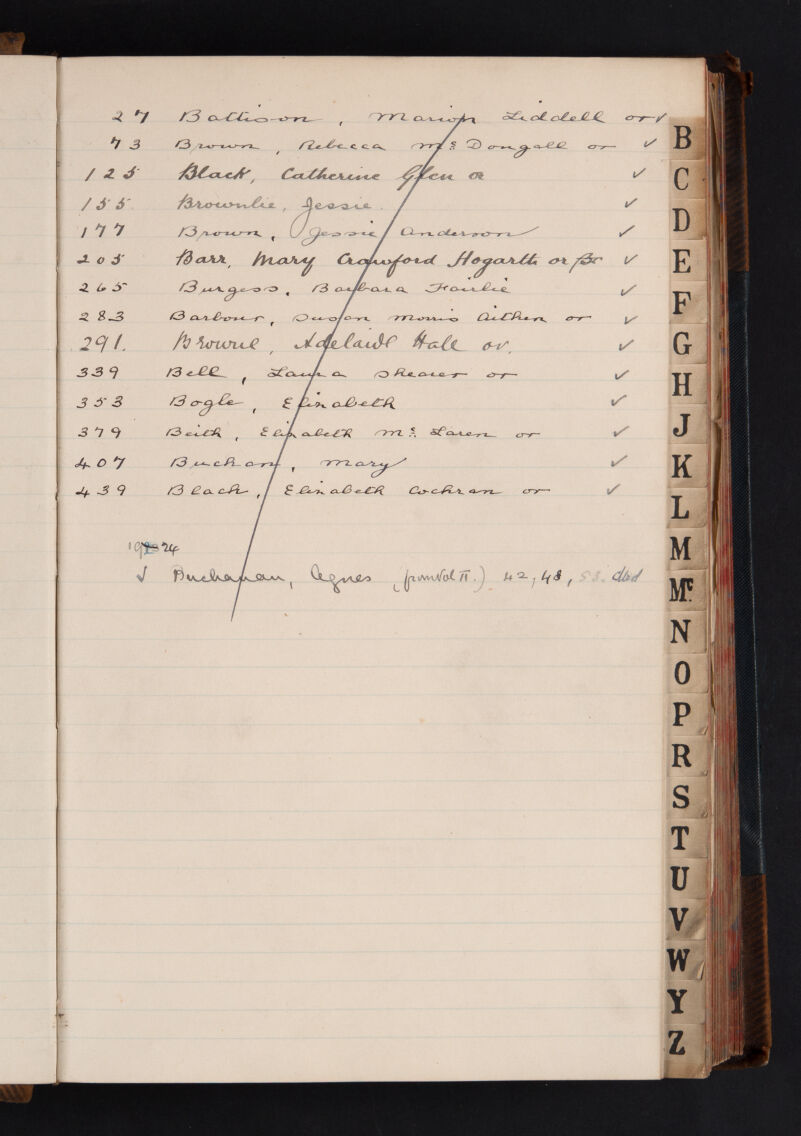 27 Battison, Marion Liddell or ✓
73 Brown, Rebecca McDougall or ✓
125 Black, Catherine Glen or ✓
155 Brownlie, Jessie. ✓
177 Brown, Jessie Anderson ✓
205 Barr, Mary Crawford Hogarth or ✓
265 Burgess, Barbara Fairlie ✓
283 Barbour, Susan Morris Aitken or ✓
291. Brownie, Adelaide Hall or. ✓
339 Bell, Laura Shearer or ✓
353 Bogle, Elizabeth ✓
379 Beith, Elizabeth McLaren or ✓
407 Buchan, Mary ✓
439 Black, Elizabeth Cochran or ✓
24
✓ Buchanan, Agnes (from Vol II.) 42, 48, 53. died
B
C
D
E
F
G
H
J
K
L
M
Mc
N
O
P
R
S
T
U
V
W
Y
Z